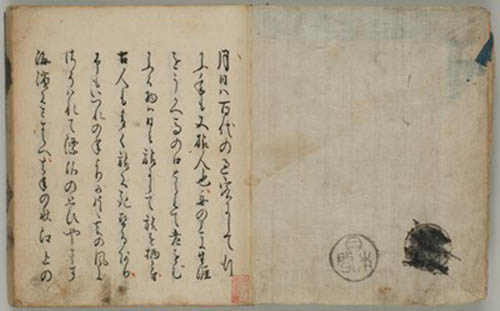 月日ハ百代の過客にして行
かふ年も又旅人也舟の上に生涯
をうかへ馬の口とらえて老をむ
かふる物ハ日々旅にして旅を栖とす
古人も多く旅に死せるあり
予もいつれの年よりか片雲の風に
さそハれて漂泊の思ひやます
海濱にさすらへ去年の秋江上の